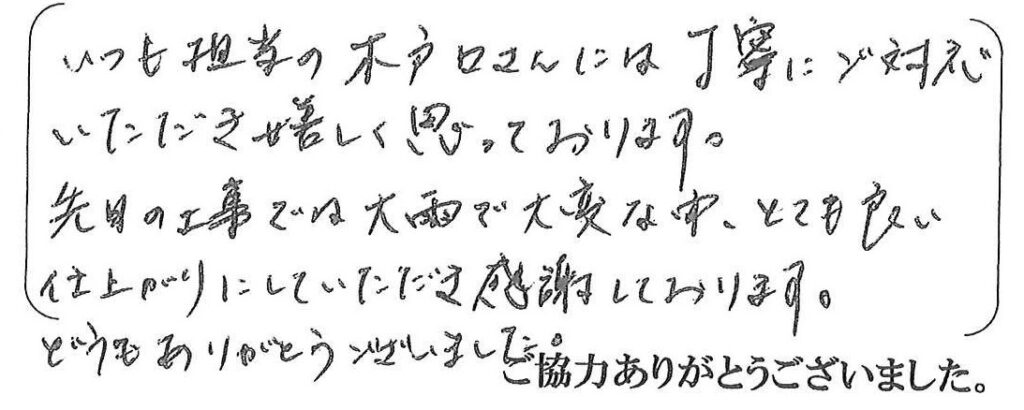 いつも担当の木戸口さんには丁寧にご対応
いただき嬉しく思っております。
先日の工事では大雨で大変な中、とても良い
仕上がりにしていただき感謝しております。
どうもありがとうございました。
ご協力ありがとうございました。